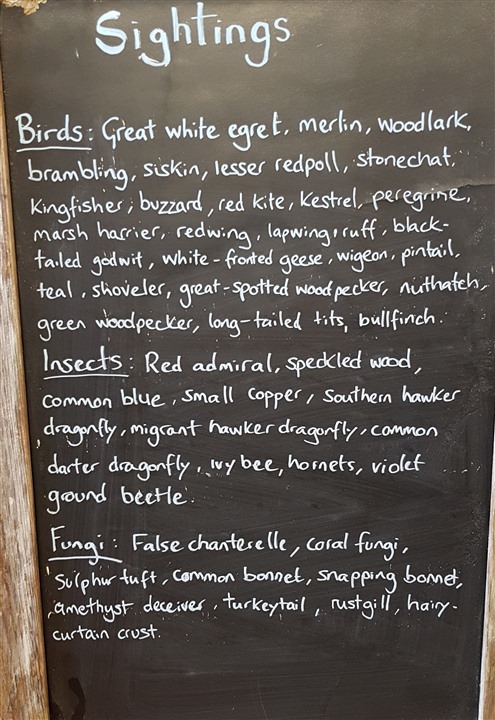 Sightings
Birds: Great white egret, merlin, woodlark,
brambling, siskin, lesser redpoll, stonechat,
Kingfisher, buzzard, red kite, Kestrel, peregrine,
marsh harrier, redwing, lapwing, ruff, black-
tailed godwit, white-fronted geese, wigeon, pintail,
teal, shoveler, great-spotted woodpecker, nuthatch,
green woodpecker, long-tailed tits, bullfinch.
Insects: Red admiral, speckled wood,
common blue, small copper, southern hawker
dragonfly, migrant hawker dragonfly, common
darter dragonfly, ivy bee, hornets, violet
ground beetle.
Fungi: False chanterelle, coral fungi,
Sulphur tuft, common bonnet, snapping bonnet,
amethyst deceiver, turkeytail, rustgill, hairy-
curtain crust.